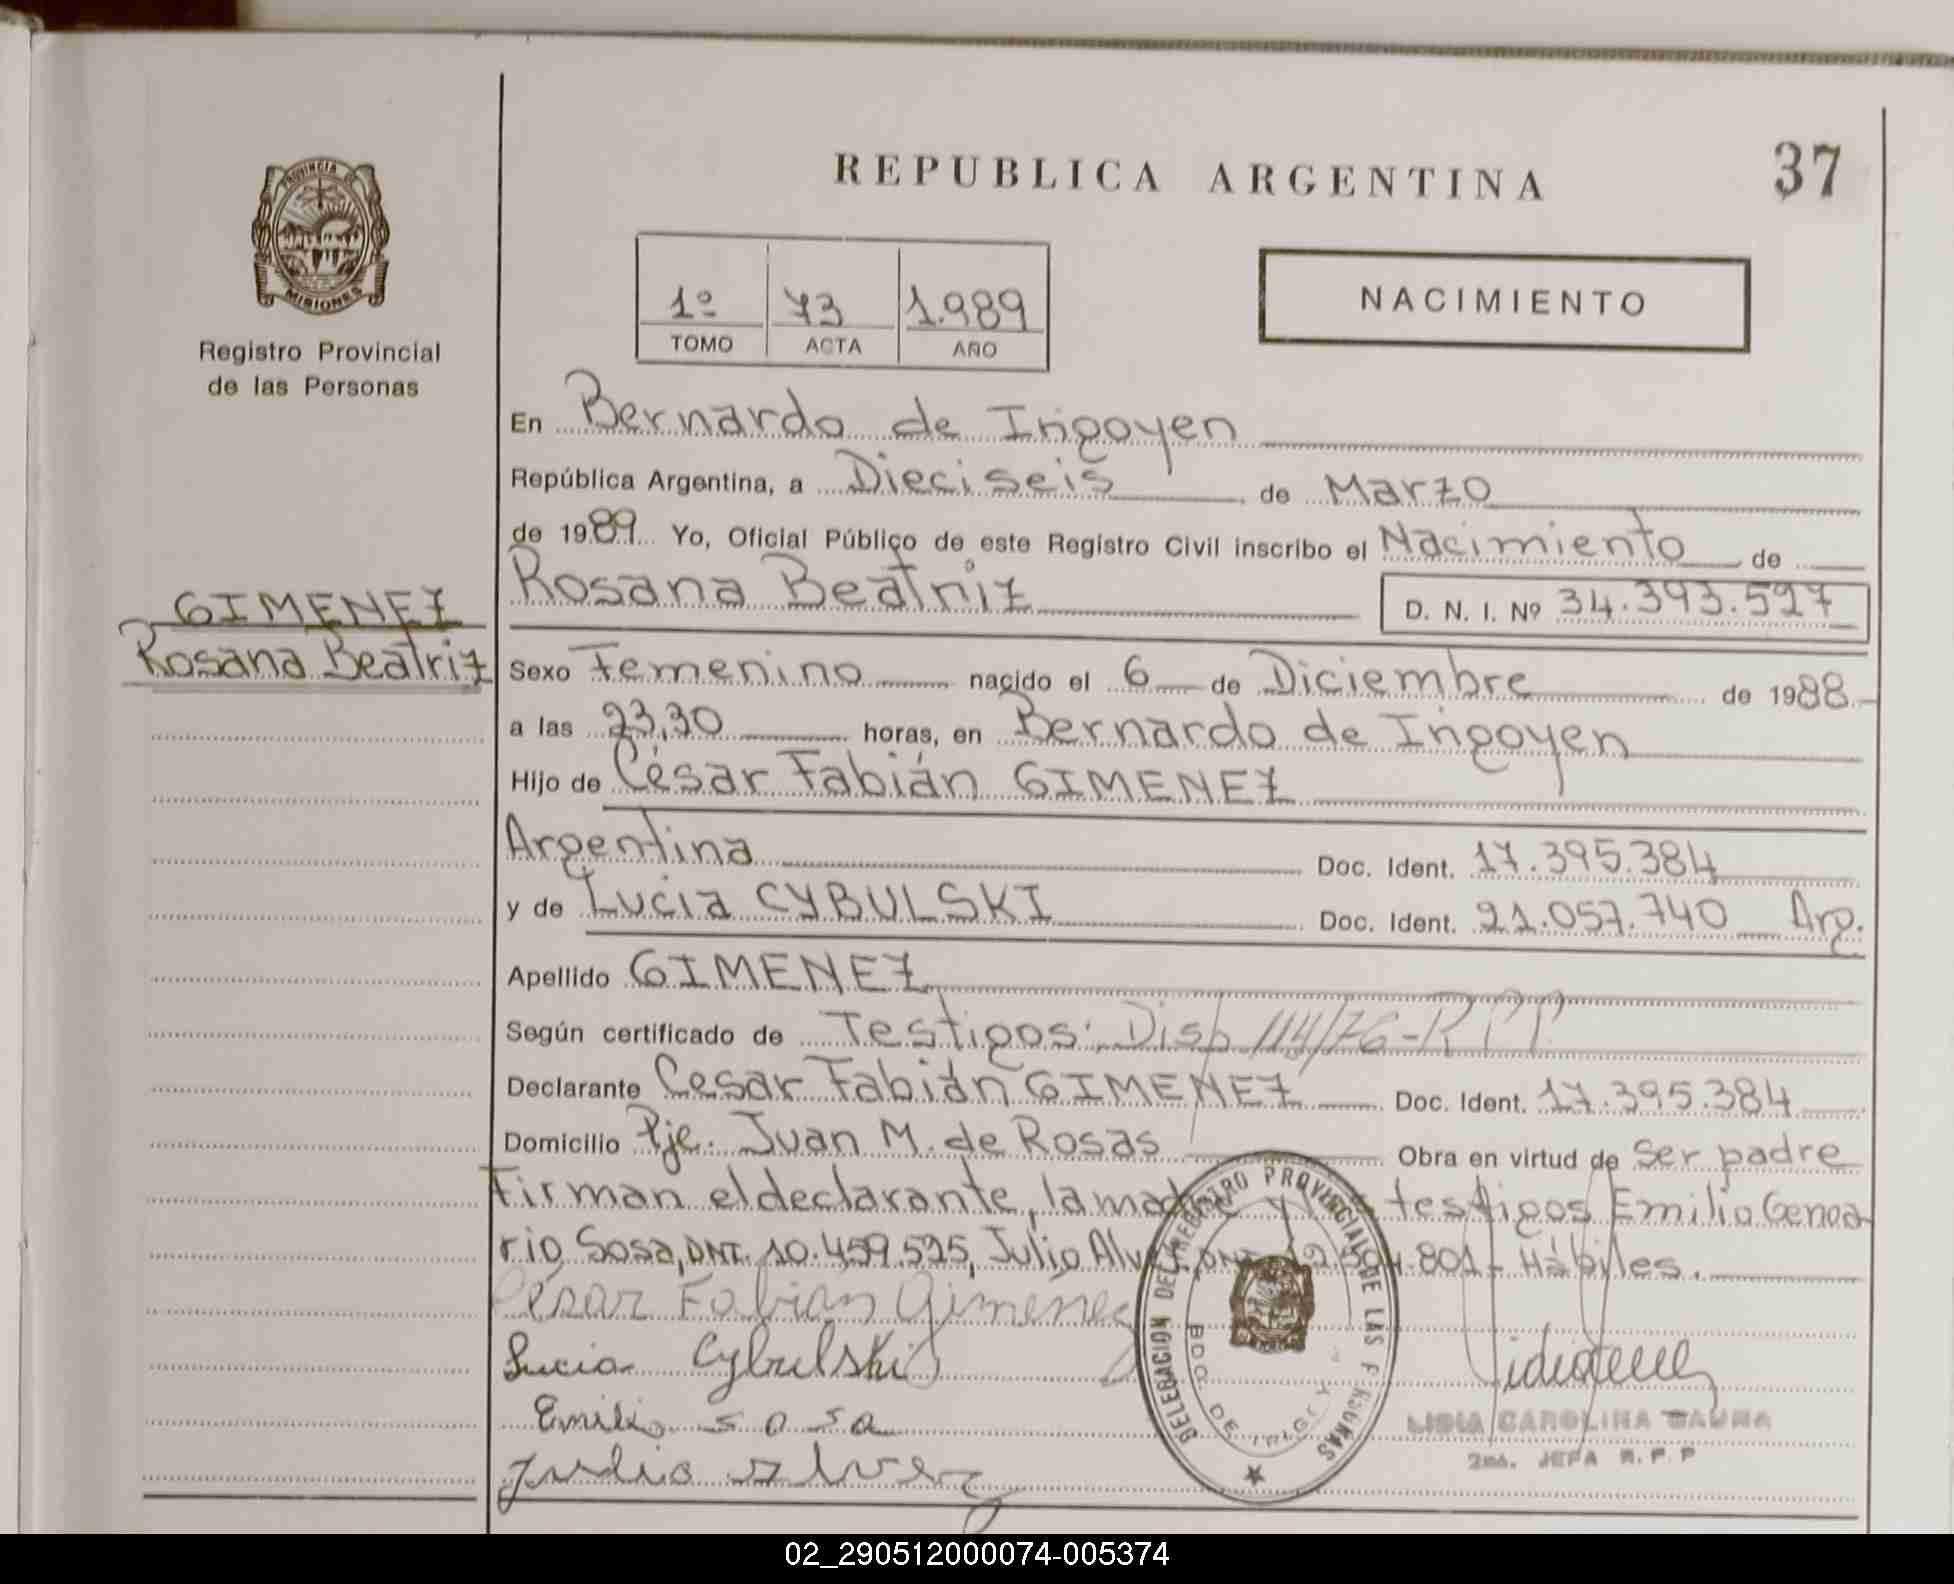 REPUBLICA ARGENTINA
37
PROVINCIA DE
MISIONES
Registro Provincial
de las Personas
1º 73 1.989
TOMO ACTA AÑO
NACIMIENTO
En Bernardo de Irigoyen
República Argentina, a Dieciseis de Marzo
de 1989 Yo, Oficial Público de este Registro Civil inscribo el Nacimiento de
Rosana Beatriz
D. N. I. Nº 34.393.527
GIMENEZ
Rosana Beatriz
Sexo Femenino nacido el 6 de Diciembre de 1988.-
a las 23,30 horas, en Bernardo de Irigoyen
Hijo de César Fabián GIMENEZ
Argentina Doc. Ident. 17.395.384
y de Lucia CYBULSKI Doc. Ident. 21.057.740 Arg.
Apellido GIMENEZ
Según certificado de Testigos: Disp 114/76-RPP
Declarante Cesar Fabián GIMENEZ Doc. Ident. 17.395.384
Domicilio Pje. Juan M. de Rosas Obra en virtud de ser padre
Firman el declarante, la madre y testigos Emilio Genoa
rio Sosa, DNI. 10.459.525, Julio Alvez, DNI. Hábiles.
Cesar Fabian Gimenez
Lucia Cybulski
Emilio sosa
Julio alvez
DELEGACION DEL REGISTRO PROVINCIAL DE LAS PERSONAS
BDO. DE IRIGOYEN
LIDIA CAROLINA GAUNA
2da. JEFA R.P.P
02_290512000074-005374